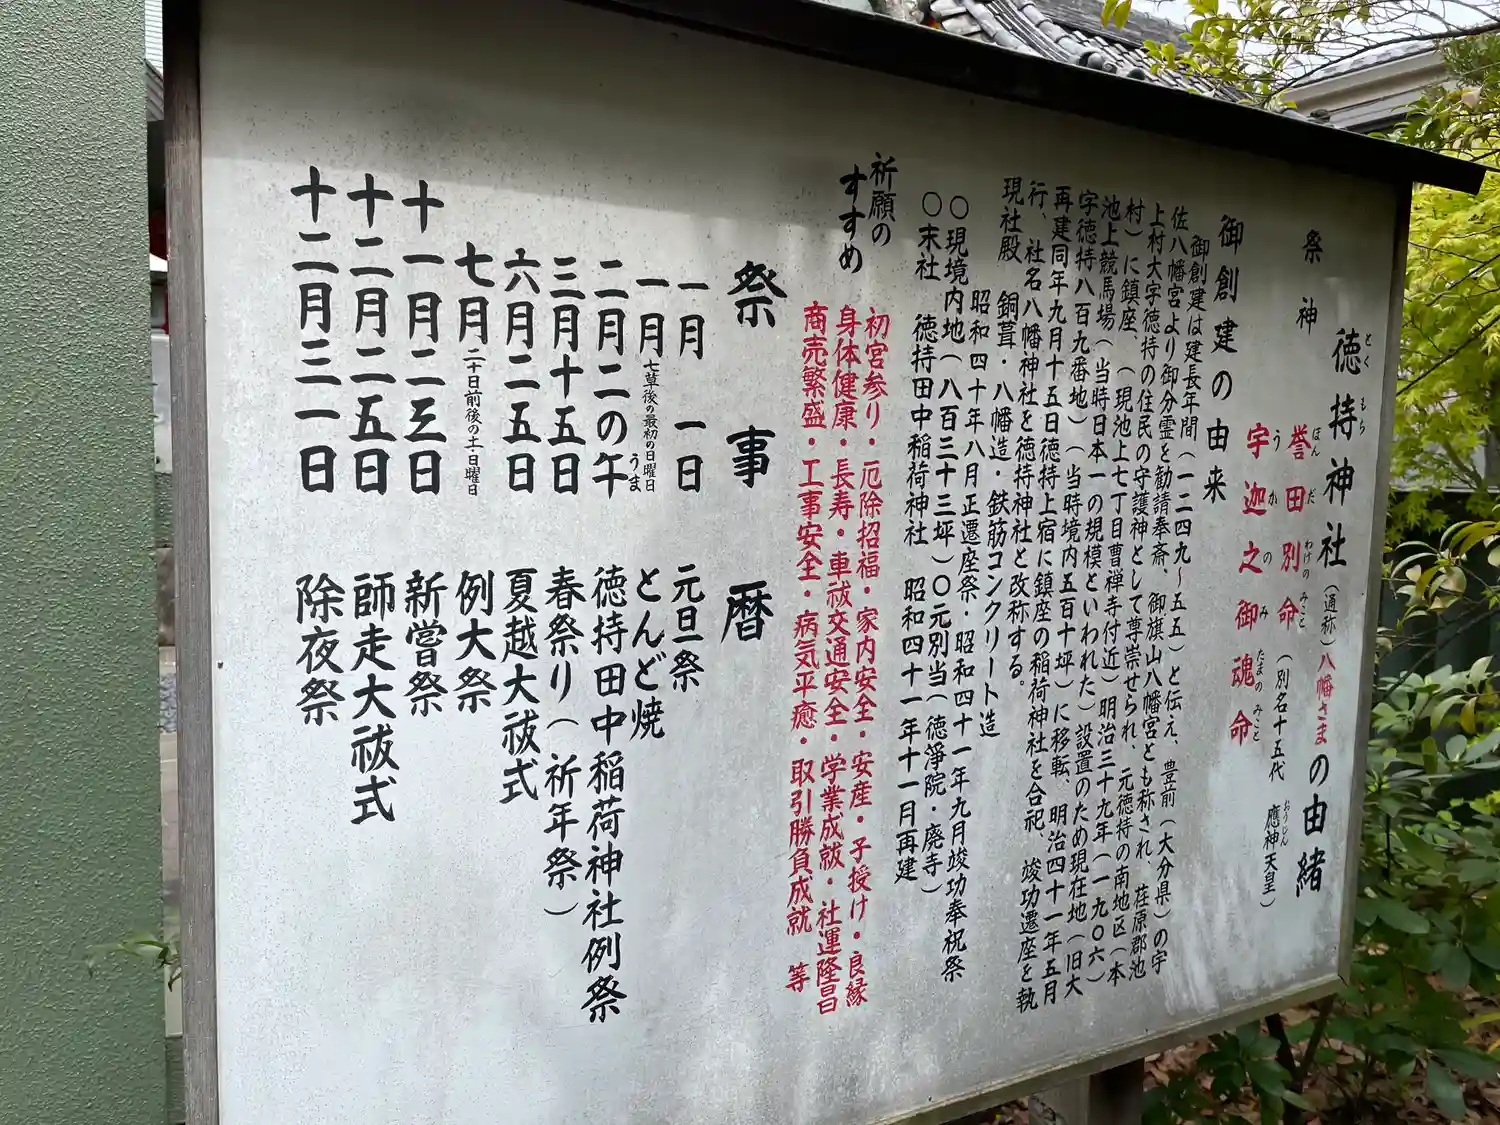 徳持神社（通称）八幡さまの由緒
とく もち
祭神
誉田別命（別名十五代 應神天皇）
ほん だ わけの みこと おうじん
宇迦之御魂命
う か の み たまの みこと
御創建の由来
御創建は建長年間（一二四九～五五）と伝え、豊前（大分県）の宇
佐八幡宮より御分霊を勧請奉斎、御旗山八幡宮とも称され、荏原郡池
上村大字徳持の住民の守護神として尊崇せられ、元徳持の南地区（本
村）に鎮座、（現池上七丁目曹禅寺付近）明治三十九年（一九〇六）
池上競馬場（当時日本一の規模といわれた）設置のため現在地（旧大
字徳持八百九番地）（当時境内五百十坪）に移転、明治四十一年五月
再建同年九月十五日徳持上宿に鎮座の稲荷神社を合祀、竣功遷座を執
行、社名八幡神社を徳持神社と改称する。
現社殿 銅葺・八幡造・鉄筋コンクリート造
昭和四十年八月正遷座祭・昭和四十一年九月竣功奉祝祭
〇現境内地（八百三十三坪）〇元別当（徳淨院・廃寺）
〇末社 徳持田中稲荷神社 昭和四十一年十一月再建
祈願の
すすめ
初宮参り・厄除招福・家内安全・安産・子授け・良縁
身体健康・長寿・車祓交通安全・学業成就・社運隆昌
商売繁盛・工事安全・病気平癒・取引勝負成就 等
祭事暦
一月一日 元旦祭
一月 七草後の最初の日曜日 とんど焼
二月二の午 うま 徳持田中稲荷神社例祭
三月十五日 春祭り（祈年祭）
六月二五日 夏越大祓式
七月 二十日前後の土・日曜日 例大祭
十一月二三日 新嘗祭
十二月二五日 師走大祓式
十二月三一日 除夜祭